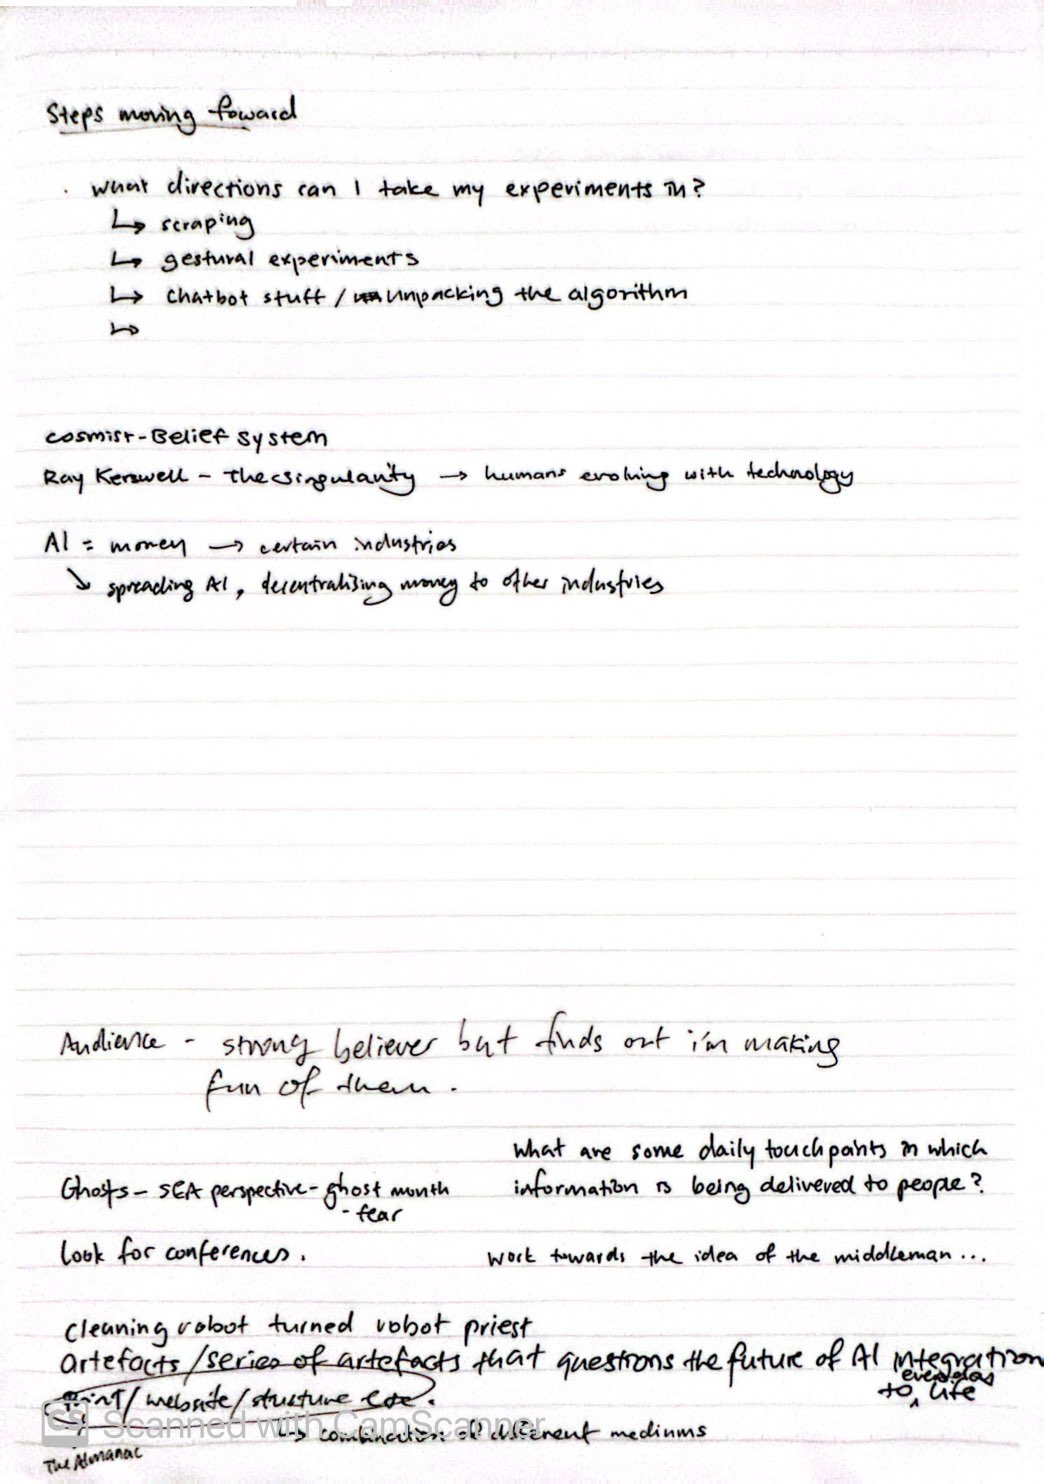 Steps moving foward
. what directions can I take my experiments in?
↳ scraping
↳ gestural experiments
↳ chatbot stuff / unpacking the algorithm
↳
cosmist - Belief system
Ray Kerzwell - The singularity → humans evolving with technology
AI = money → certain industries
↘ spreading AI, decentralising money to other industries
Audience - strong believer but finds out i'm making
fun of them.
what are some daily touchpoints in which
information is being delivered to people?
Ghosts - SEA perspective - ghost month
- fear
look for conferences.
work towards the idea of the middleman...
cleaning robot turned robot priest
artefacts / series of artefacts that questions the future of AI integration
to ^ everyday life
print / website / structure etc.
↳ combination of different mediums
The Almanac
CS Scanned with CamScanner